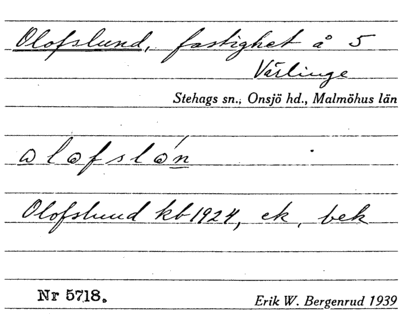 Olofslund, fastighet å 5
Värlinge
Stehags sn., Onsjö hd., Malmöhus län
olofslón
Olofslund kb 1924, ek, bek
Nr 5718. Erik W. Bergenrud 1939